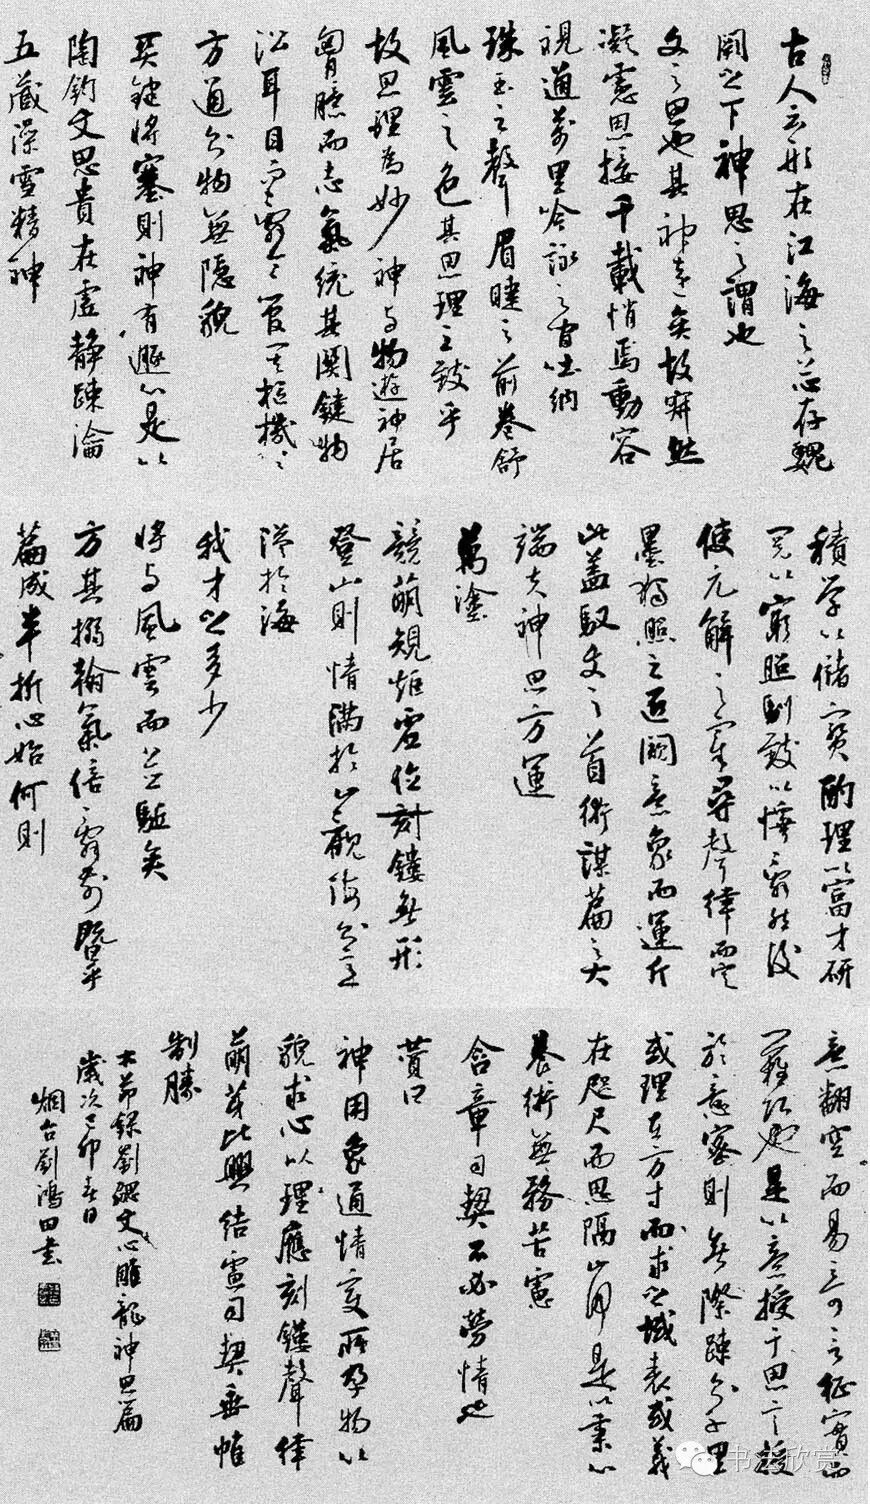 古人云形在江海之上心存魏
闕之下神思之謂也
文之思也其神遠矣故寂然
凝慮思接千載悄焉動容
視通萬里吟詠之間吐納
珠玉之聲眉睫之前卷舒
風雲之色其思理之致乎
故思理為妙神与物遊神居
胷臆而志氣統其關鍵物
沿耳目而辭令管其樞機樞機
方通則物無隱貌
關鍵將塞則神有遯心是以
陶鈞文思貴在虛靜疎瀹
五藏澡雪精神
積學以儲寶酌理以富才研
閱以窮照馴致以懌辭然後
使元解之宰尋聲律而定
墨獨照之匠闚意象而運斤
此盖馭文之首術謀篇之大
端夫神思方運
萬塗
競萌規矩虛位刻鏤無形
登山則情滿於山觀海則意
溢於海
我才之多少
將与風雲而並驅矣
方其搦翰氣倍辭前暨乎
篇成半折心始何則
意翻空而易奇言征實而
難巧也是以意授于思言授
於意密則無際疎則千里
或理在方寸而求之域表或義
在咫尺而思隔山河是以秉心
養術無務苦慮
含章司契不必勞情也
贊曰
神用象通情變所孕物以
貌求心以理應刻鏤聲律
萌芽比興結慮司契垂帷
制勝
右節錄劉勰文心雕龍神思篇
歲次己卯春日
烟台劉鴻田書
书法欣赏